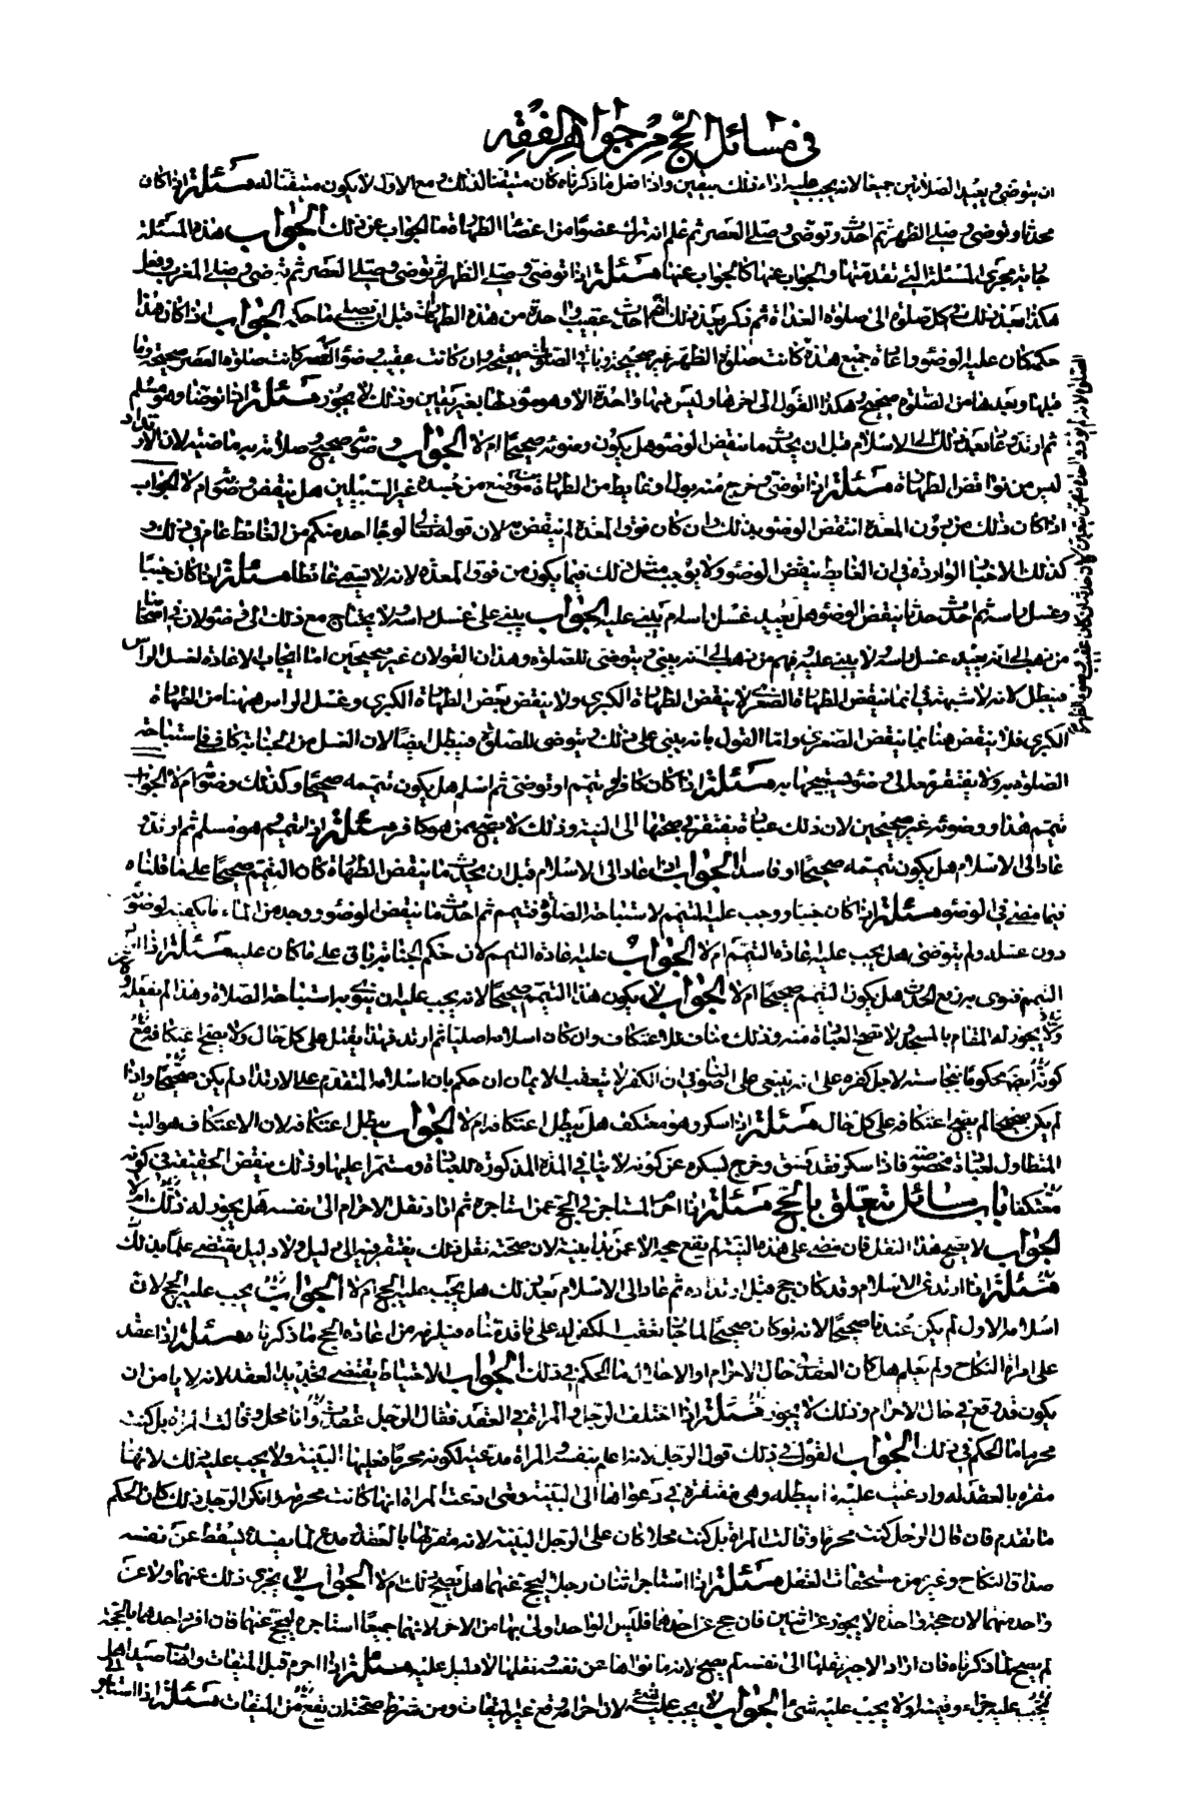 في مسائل الحج من جواهر الفقه
ان يتوضى ويعيد الصلاتين جميعا لانه يجب عليه اداء ذلك بيقين واذا فعل ما ذكرناه كان متيقنا لذلك ومع الاول لا يكون متيقنا له مسئلة اذا كان
محدثا وتوضى وصلى الظهر ثم احدث وتوضى وصلى العصر ثم علم انه ترك عضوا من اعضاء الطهارة ما الجواب عن ذلك الجواب هذه المسئلة
جارية مجرى المسئلة التي تقدمتها والجواب عنها كالجواب عنها مسئلة اذا توضى وصلى الظهر ثم توضى وصلى العصر ثم توضى وصلى المغرب وفعل
هكذا بعد ذلك في كل صلوة الى صلوة الغداة ثم ذكر بعد ذلك انه احدث عقيب واحدة من هذه الطهارات قبل ان يصلي ما حكمه الجواب اذا كان هذا
حكمه كان عليه الوضوء واعادة جميع هذه كانت صلوة الظهر غير صحيحة وباقي الصلوة صحيحة وان كانت عقيب وضوء العصر كانت صلوة العصر صحيحة وما
قبلها وبعدها من الصلوة صحيح وهكذا القول الى اخرها وليس فيها واحدة الا وهو مؤد لها بغير يقين وذلك لا يجوز مسئلة اذا توضأ وهو مسلم
ثم ارتد وعاد بعد ذلك الى الاسلام قبل ان يحدث ما ينقض الوضوء هل يكون وضوئه صحيحا ام لا الجواب وضوئه صحيح وصلاته به ماضية لان الارتداد
ليس من نواقض الطهارة مسئلة اذا توضى وخرج منه بول او غايط من الطهارة موضع من جسده غير السبيلين هل ينقض وضوئه ام لا الجواب
اذا كان ذلك من دون المعدة انتقض الوضوء بذلك وان كان فوق المعدة لم ينقض به لان قوله تعالى او جاء احد منكم من الغائط عام في ذلك و
كذلك الاخبار الواردة في ان الغايط ينقض الوضوء ولا يوجب مثل ذلك فيما يكون من فوق المعدة لانه لا يسمى غائطا مسئلة اذا كان جنبا
وغسل راسه ثم احدث حدثا ينقض الوضوء هل يعيد غسل راسه ام يبني عليه الجواب يبني على غسل راسه ولا يحتاج مع ذلك الى وضوء لان في اصحابنا
من ذهب الى انه يعيد غسل راسه ولا يبني عليه ومنهم من ذهب الى انه يبني ويتوضى للصلوة وهذان القولان غير صحيحين اما ايجاب الاعادة لغسل الراس
فيبطل لانه لا شبهة في انما ينقض الطهارة الصغرى لا ينقض الطهارة الكبرى ولا ينقض بعض الطهارة الكبرى وغسل الراس ههنا من الطهارة
الكبرى فلا ينقض هنا بما ينقض الصغرى واما القول بانه يبني على ذلك ويتوضى للصلوة فيبطل ايضا لان الغسل من الجنابة كاف في استباحة
الصلوة به ولا يفتقر معه الى وضوء يستبيحها به مسئلة اذا كان كافر وتيمم او توضى ثم اسلم هل يكون تيممه صحيحا وكذلك وضوئه ام لا الجواب
تيمم هذا ووضوئه غير صحيحين لان ذلك عبادة يفتقر في صحتها الى النية وذلك لا يصح ممن هو كافر مسئلة اذا تيمم وهو مسلم ثم ارتد و
عاد الى الاسلام هل يكون تيممه صحيحا او فاسدا الجواب اذا عاد الى الاسلام قبل ان يحدث ما ينقض الطهارة كان التيمم صحيحا على ما قلناه
فيما مضى في الوضوء مسئلة اذا كان جنبا ووجب عليه التيمم لاستباحة الصلوة فتيمم ثم احدث ما ينقض الوضوء ووجد من الماء ما يكفيه لوضوئه
دون غسله ولم يتوضى هل يجب عليه اعادة التيمم ام لا الجواب عليه اعادة التيمم لان حكم الجنابة باق على ما كان عليه مسئلة اذا
التيمم فنوى به رفع الحدث هل يكون التيمم صحيحا ام لا الجواب لا يكون هذا التيمم صحيحا لانه يجب عليه ان ينوي به استباحة الصلاة وهذا لم يفعله
ولا يجوز له المقام بالمسجد ولا تصح العبادة منه وذلك مناف للاعتكاف وان كان اسلامه اصليا ثم ارتد فهذا يقتل على كل حال ولا يصح اعتكافه مع
كونه ايضا محكوما بنجاسته لاجل كفره على انه ينبغي على اصولنا في ان الكفر لا يتعقب الايمان ان حكم بان اسلامه المتقدم على الارتداد لم يكن صحيحا واذا
لم يكن صحيحا لم يصح اعتكافه على كل حال مسئلة اذا سكر وهو معتكف هل يبطل اعتكافه ام لا الجواب يبطل اعتكافه لان الاعتكاف هو اللبث
المتطاول لعبادة مخصوصة فاذا سكر فقد فسق وخرج بسكره عن كونه لابثا في المدة المذكورة للعبادة ومستمرا عليها وذلك ينقض الحقيقة في كونه
معتكفا باب مسائل تتعلق بالحج مسئلة اذا احرم المستاجر في الحج عمن استاجره ثم اراد نقل الاحرام الى نفسه هل يجوز له ذلك ام لا
الجواب لا يصح هذا النقل فان مضى على هذه النية لم يقع حجه الا عمن بدأ بنيته لان صحة نقل ذلك يفتقر فيه الى دليل ولا دليل يقتضي علما بذلك
مسئلة اذا ارتد عن الاسلام وقد كان حج قبل ارتداده ثم عاد الى الاسلام بعد ذلك هل يجب عليه الحج ام لا الجواب يجب عليه الحج لان
اسلامه الاول لم يكن عندنا صحيحا لانه لو كان صحيحا لما جاز تعقب الكفر له على ما قدمناه فيلزمه من اعادة الحج ما ذكرناه مسئلة اذا عقد
على امراة النكاح ولم يعلم هل كان العقد في حال الاحرام او الاحلال ما الحكم في ذلك الجواب الاحتياط يقتضي تجديد العقد لانه لا يامن ان
يكون قد وقع في حال الاحرام وذلك لا يجوز مسئلة اذا اختلف الرجل والمراة في العقد فقال الرجل عقدت وانا محل وقالت المراة بل كنت
محرما ما الحكم في ذلك الجواب القول في ذلك قول الرجل لانه اعلم بنفسه والمراة مدعية لكونه محرما فعليها البينة ولا يجب عليه ذلك لانها
مقرة بالعقد له وادعت عليه ما يبطله وهي مفتقرة في دعواها الى البينة ومتى ادعت المراة انها كانت محرمة وانكر الرجل ذلك كان الحكم
ما تقدم فان قال الرجل كنت محرما وقالت المراة بل كنت محلا كان على الرجل البينة لانه مقر لها بالعقد مدع لما يفسده ليسقط عن نفسه
صداق النكاح وغيره من مستحقات العقل مسئلة اذا استاجر اثنان رجلا ليحج عنهما هل يصح ذلك ام لا الجواب لا يجزي ذلك عنهما ولا عن
واحد منهما لان حجة واحدة لا يجوز عن اثنين فان حج عن احدهما فليس الواحد اولى بها من الاخر لانهما جميعا استاجراه ليحج عنهما فان افرد احدهما بالحجة
لم يصح لما ذكرناه فان اراد الاجير نقلها الى نفسه لم يصح لانه ما نواها عن نفسه ونقلها لا دليل عليه مسئلة اذا احرم قبل الميقات واصاب صيدا هل
يجب عليه جزاء وفيه او لا يجب عليه شئ الجواب لا يجب عليه شئ لان احرامه وقع غير الميقات ومن شرط صحته ان يقع من الميقات مسئلة اذا استاجر